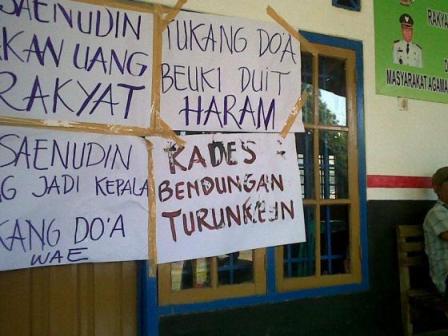 SAENUDIN
AKAN UANG
RAKYAT
TUKANG DO'A
BEUKI DUIT
HARAM
SAENUDIN
NG JADI KEPALA
KANG DO'A
WAE
KADES
BENDUNGAN
TURUNKEUN
RAKYA
MASYARAKAT AGAMA